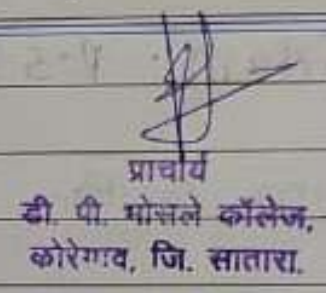 प्राचार्य
डी. पी. भोसले कॉलेज,
कोरेगाव, जि. सातारा.